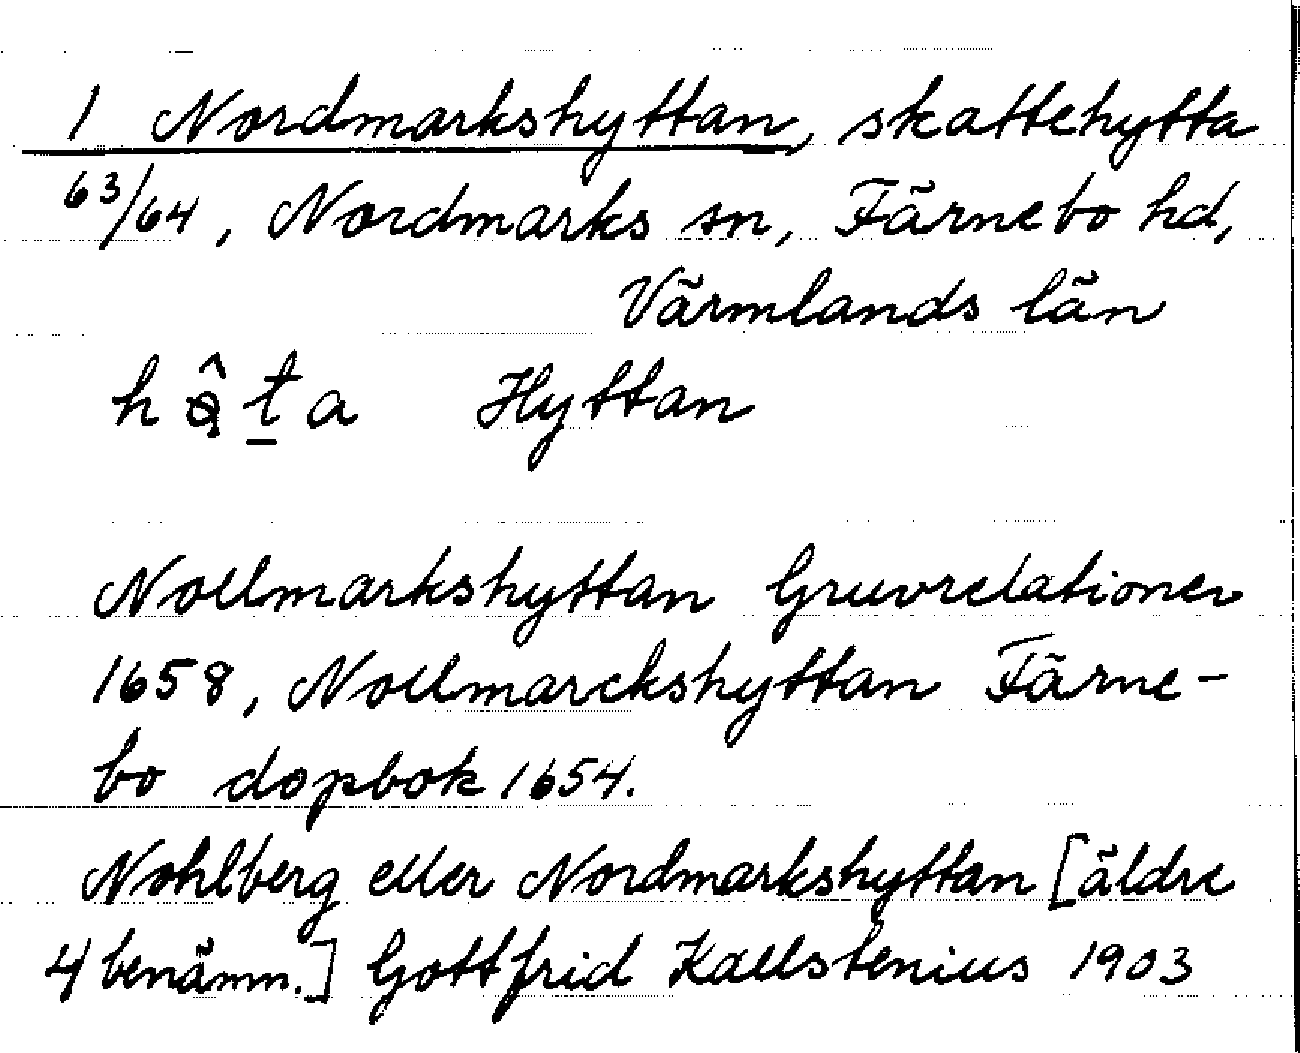 1 Nordmarkshyttan, skattehytta
63/64, Nordmarks sn, Färnebo hd,
Värmlands län
Hyttan
Nollmarkshyttan Gruvrelationer
1658, Nollmarckshyttan Färne-
bo dopbok 1654.
Nohlberg eller Nordmarkshyttan [äldre
4 benämn.] Gottfrid Kallstenius 1903